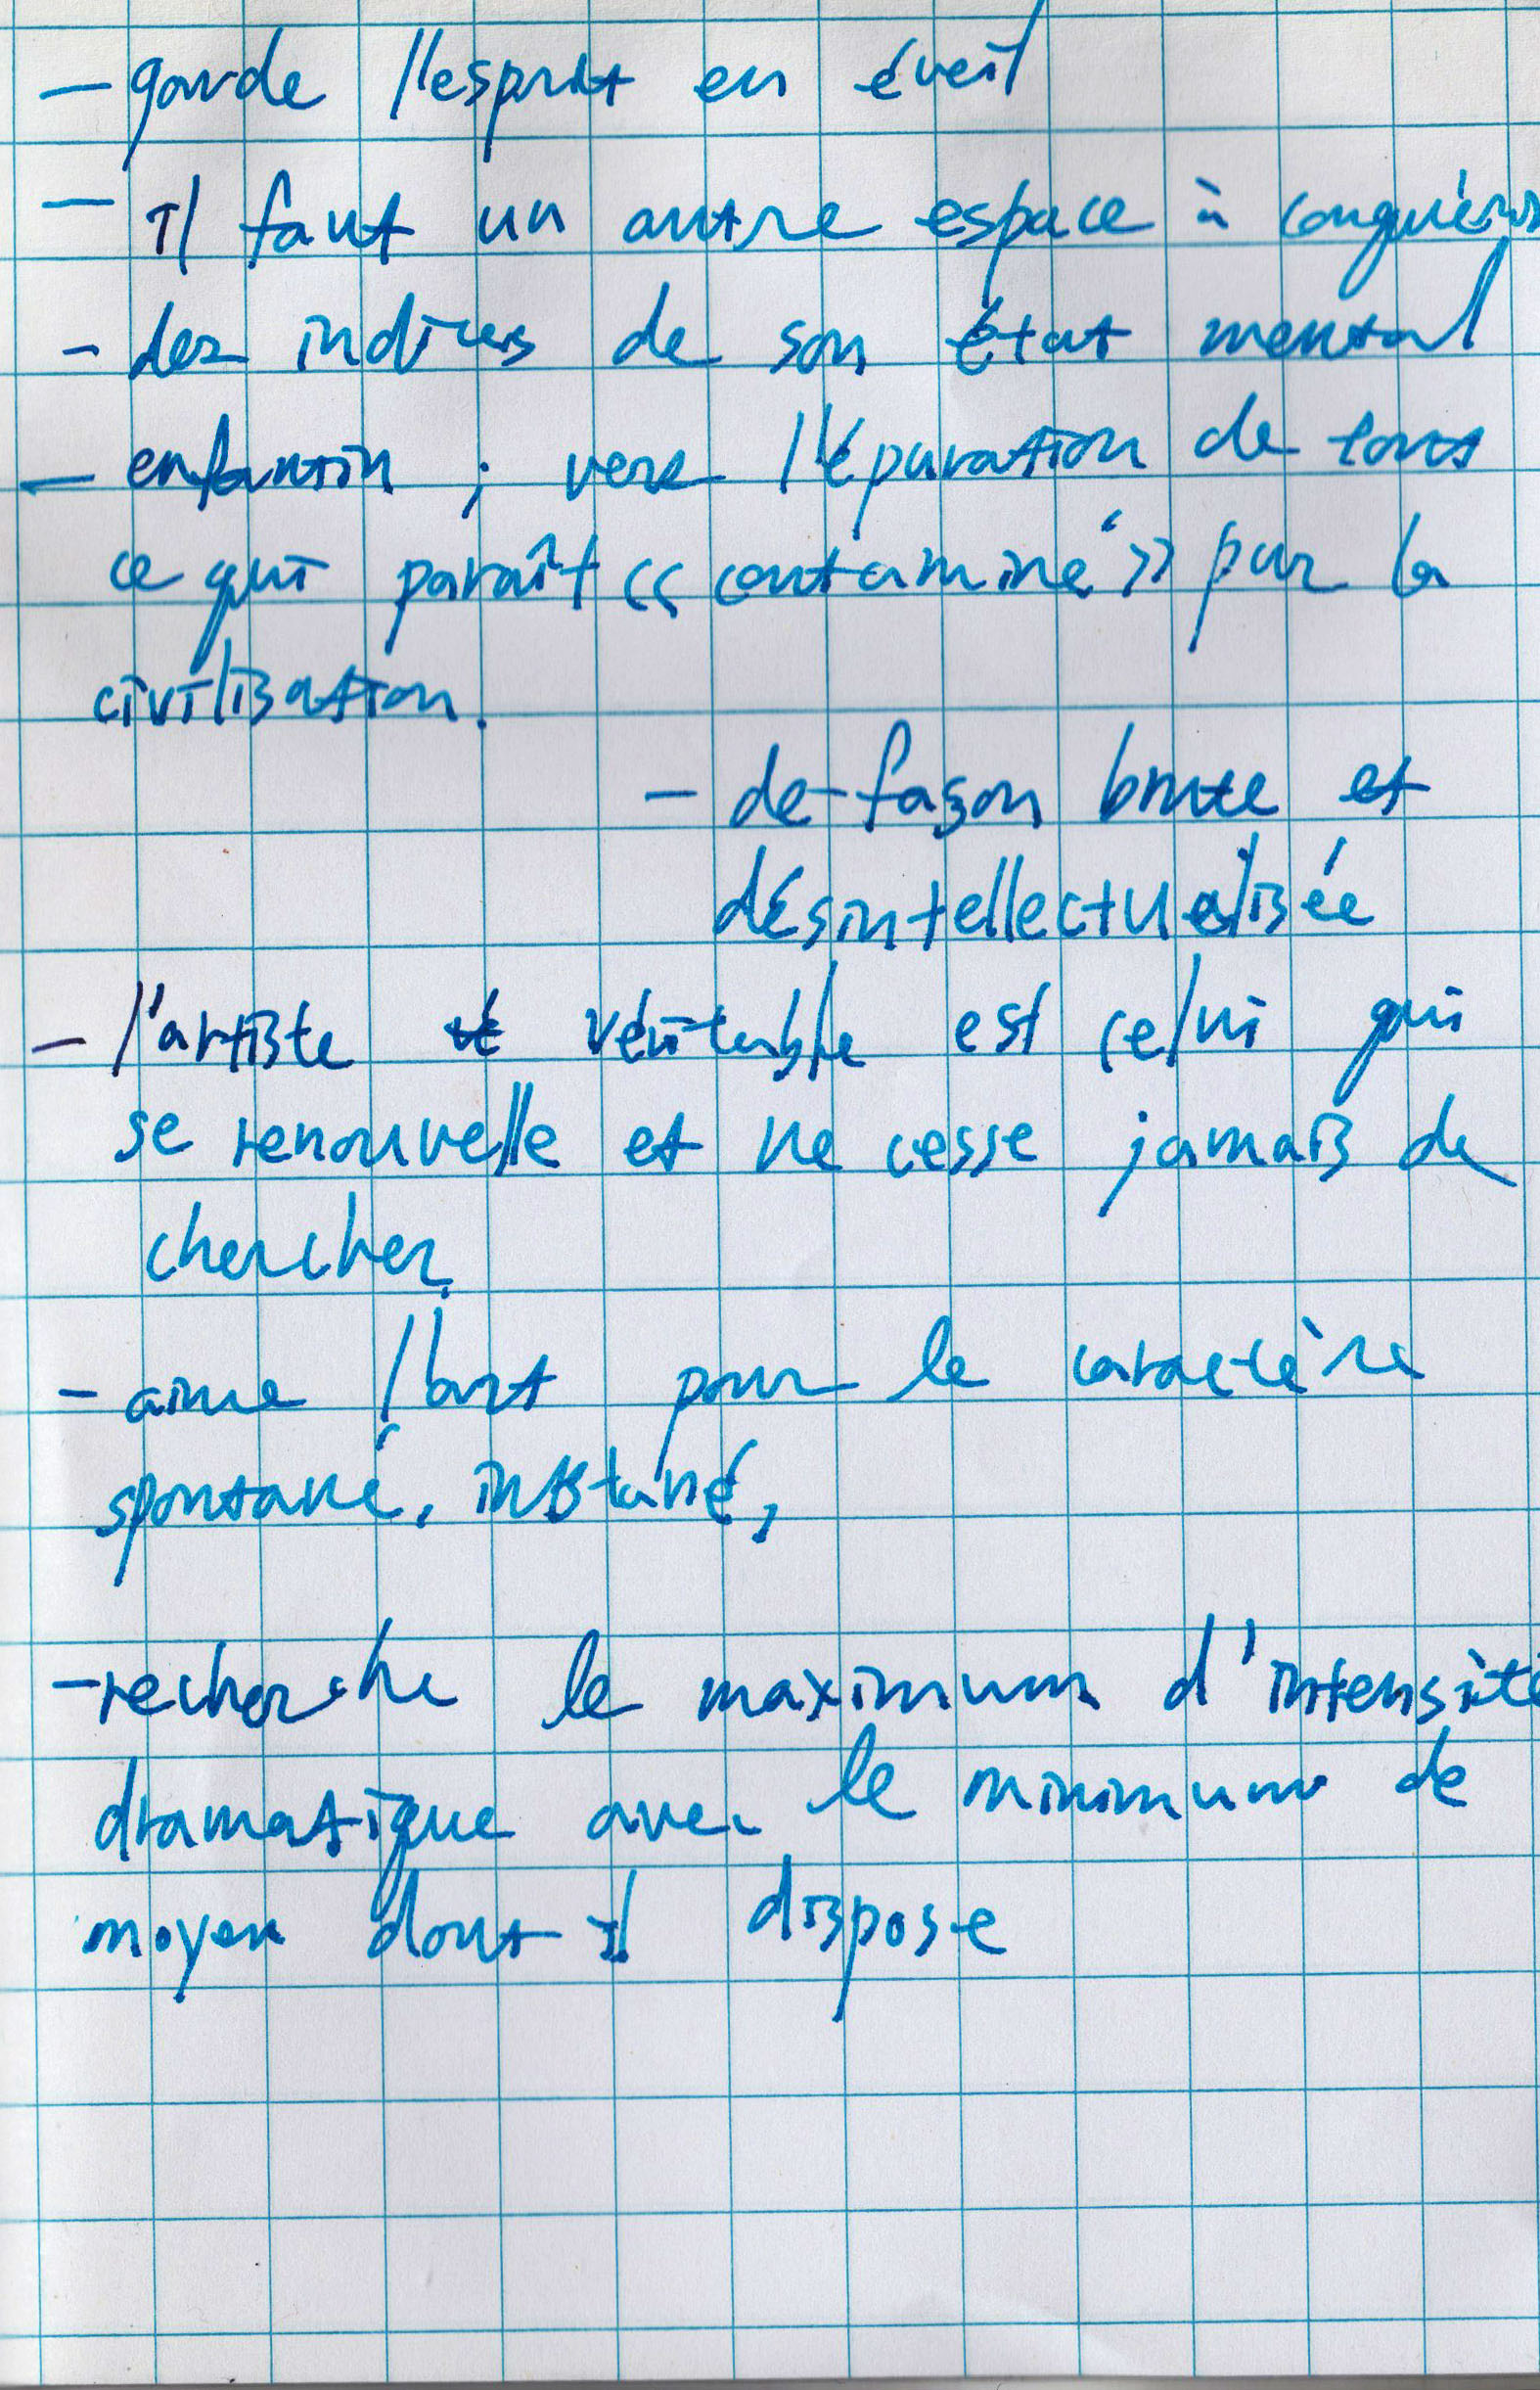 - garde l'esprit en éveil
- Il faut un autre espace à conquérir
- des indices de son état mental
- enfantin ; vers l'épuration de tout
ce qui paraît << contaminé >> par la
civilisation.
- de façon brute et
désintellectualisée
- l'artiste véritable est celui qui
se renouvelle et ne cesse jamais de
chercher.
- aime l'art pour le caractère
spontané, instané,
- recherche le maximum d'intensité
dramatique avec le minimum de
moyen dont il dispose